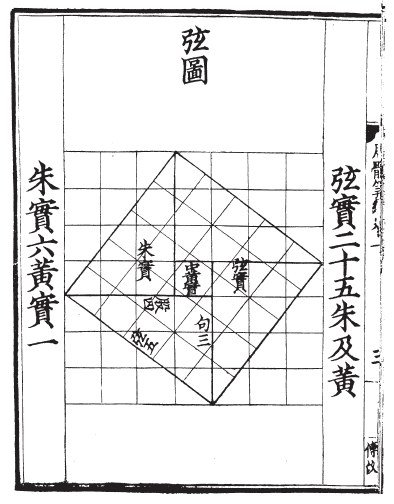 弦圖
弦實二十五朱及黃
朱實六黃實一
朱實
黃實
弦實
股四
句三
弦五
三